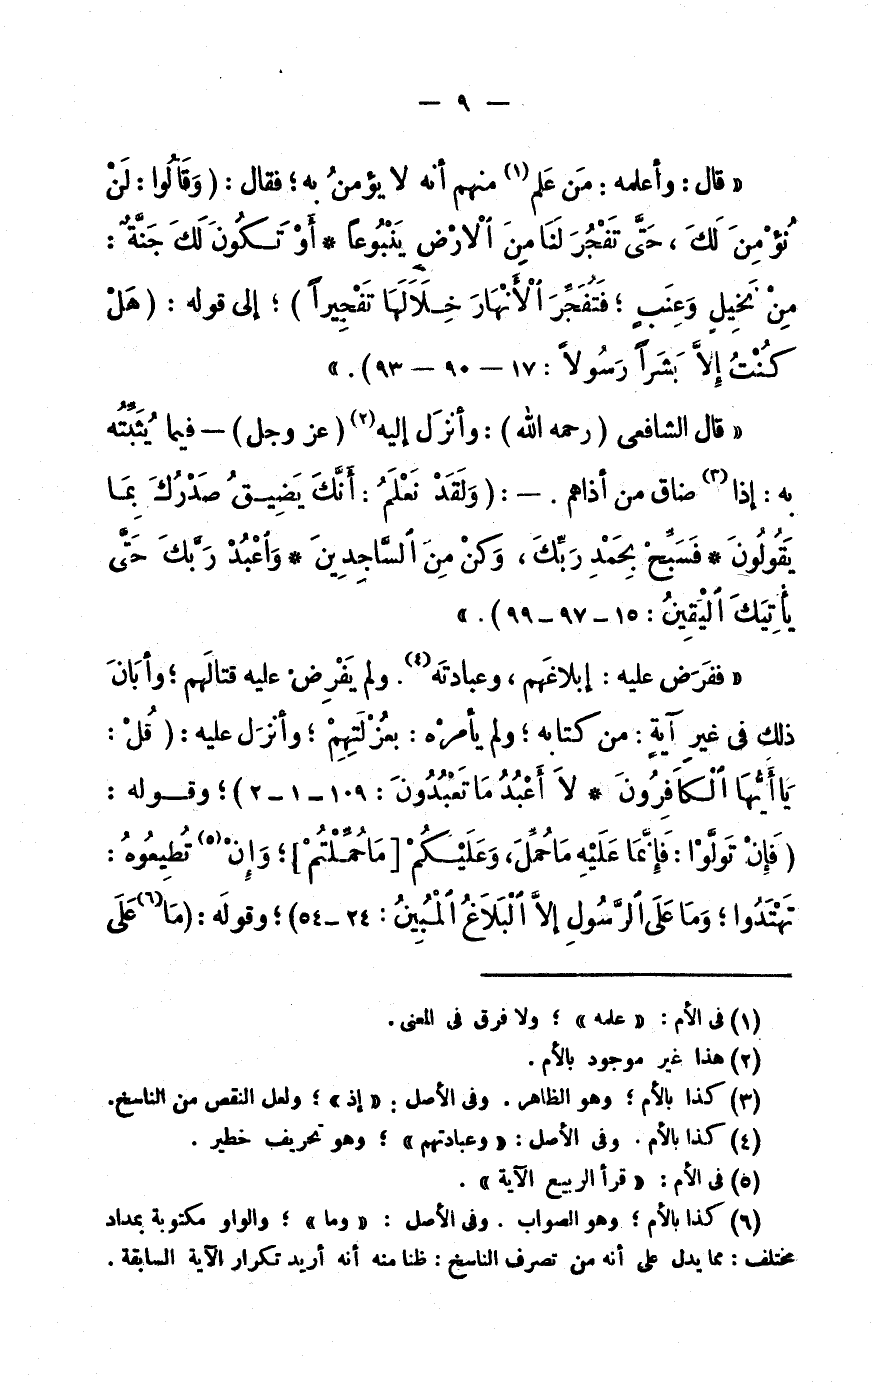 — ٩ —
« قال : وأعلمه : مَن عَلم(١) منهم أنه لا يؤمنُ به ؛ فقال : ( وَقَالُوا : لَنْ
نُؤْمِنَ لَكَ ، حَتَّى تَفْجُرَ لَنَا مِنَ ٱلْارْضِ يَنْبُوعاً * أَوْ تَكُونَ لَكَ جَنَّةٌ :
مِنْ نَخِيلٍ وَعِنَبٍ ؛ فَتُفَجِّرَ ٱلْأَنْهَارَ خِلَالَهَا تَفْجِيراً ) ؛ إلى قوله : ( هَلْ
كُنْتُ إِلاَّ بَشَراً رَسُولاً : ١٧ — ٩٠ — ٩٣ ) . »
« قال الشافعى ( رحمه الله ) : وأنزَل إليه(٢) ( عز وجل ) — فيما يُثَبِّتُه
به : إذا(٣) ضاق من أذاهم . — : ( وَلَقَدْ نَعْلَمُ : أَنَّكَ يَضِيقُ صَدْرُكَ بِمَا
يَقُولُونَ * فَسَبِّحْ بِحَمْدِ رَبِّكَ ، وَكُنْ مِنَ ٱلسَّاجِدِينَ * وَٱعْبُدْ رَبَّكَ حَتَّى
يَأْتِيَكَ ٱلْيَقِينُ : ١٥ – ٩٧ – ٩٩ ) . »
« ففرَض عليه : إبلاغَهم ، وعبادتَه(٤) . ولم يَفْرِضْ عليه قتالَهم ؛ وأبَانَ
ذلك فى غيرِ آيةٍ : من كتابه ؛ ولم يأمرْه : بعُزْلَتِهِمْ ؛ وأنزَل عليه : ( قُلْ :
يَا أَيُّهَا ٱلْكَافِرُونَ * لاَ أَعْبُدُ مَا تَعْبُدُونَ : ١٠٩ – ١ – ٢ ) ؛ وقوله :
( فَإِنْ تَوَلَّوْا : فَإِنَّمَا عَلَيْهِ مَا حُمِّلَ ، وَعَلَيْكُمْ [ مَا حُمِّلْتُمْ ] ؛ وَإِنْ(٥) تُطِيعُوهُ :
تَهْتَدُوا ؛ وَمَا عَلَى ٱلرَّسُولِ إِلاَّ ٱلْبَلَاغُ ٱلْمُبِينُ : ٢٤ – ٥٤ ) ؛ وقولَه : ( مَا(٦) عَلَى
(١) فى الأم : « علمه » ؛ ولا فرق فى المعنى .
(٢) هذا غير موجود بالأم .
(٣) كذا بالأم ؛ وهو الظاهر . وفى الأصل : « إذ » ؛ ولعل النقص من الناسخ .
(٤) كذا بالأم . وفى الأصل : « وعبادتهم » ؛ وهو تحريف خطير .
(٥) فى الأم : « قرأ الربيع الآية » .
(٦) كذا بالأم ؛ وهو الصواب . وفى الأصل : « وما » ؛ والواو مكتوبة بمداد
مختلف : مما يدل على أنه من تصرف الناسخ : ظنا منه أنه أريد تكرار الآية السابقة .